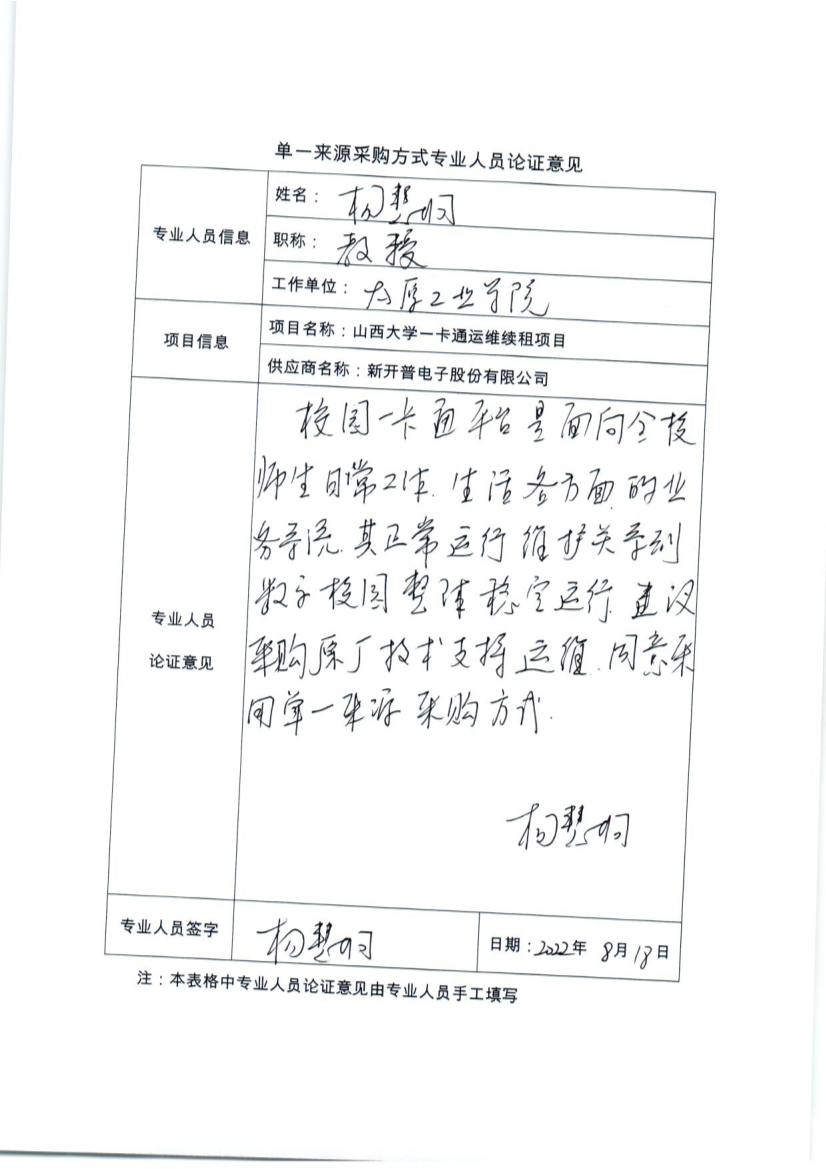 单一来源采购方式专业人员论证意见
专业人员信息
姓名：杨慧炯
职称：教授
工作单位：太原工业学院
项目信息
项目名称：山西大学一卡通运维续租项目
供应商名称：新开普电子股份有限公司
专业人员
论证意见
校园一卡通平台是面向全校
师生日常工作、生活各方面的业
务系统，其正常运行维护关系到
数字校园整体稳定运行，建议
采购原厂技术支持运维，同意采
用单一来源采购方式.
杨慧炯
专业人员签字
杨慧炯
日期：2022年 8月18日
注：本表格中专业人员论证意见由专业人员手工填写